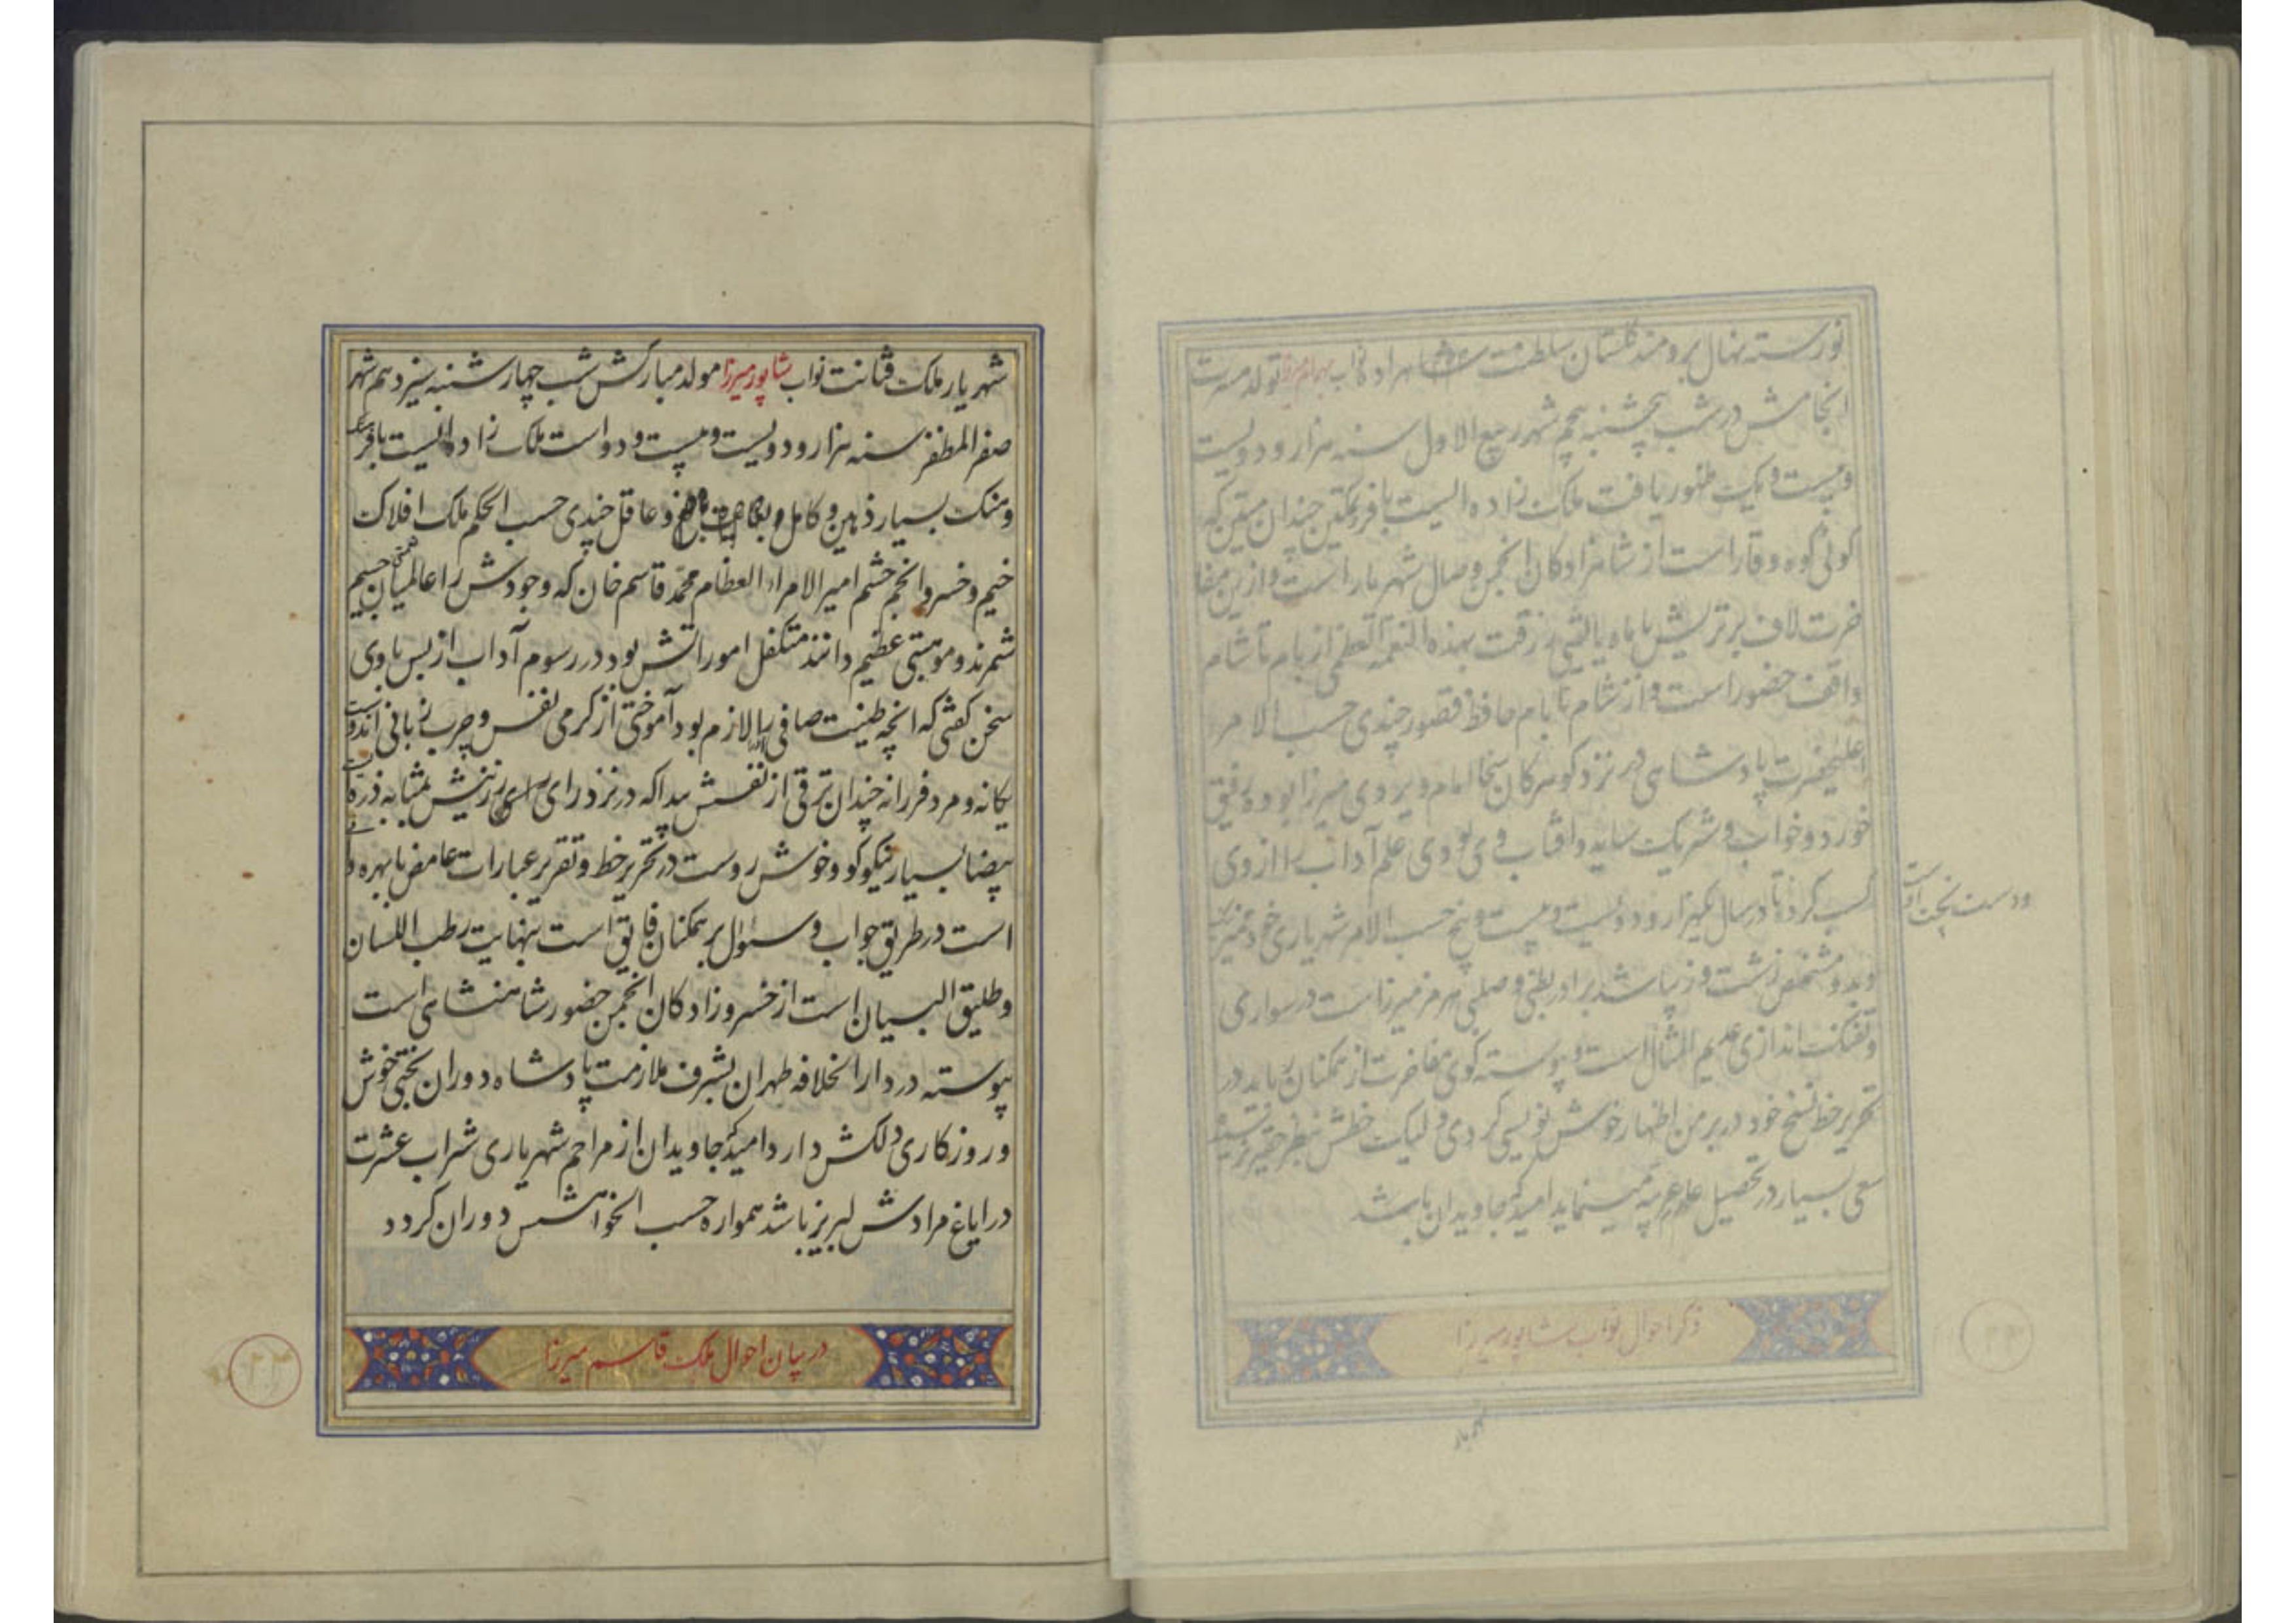 نورسته نهال برومند گلستان سلطنت شاهزاده نواب بهرام میرزا تولد مسرت
انجامش در شب پنجشنبه پنجم شهر ربیع الاول سنه هزار و دویست
و بیست و یک ظهور یافت ملک زاده ایست با فر و تمکین چندان متین که
گوئی کوه وقار است از شاهزادگان انجمن وصال شهریار است و ازین مفا
خرت لاف برتریش با ماه یا لیتنی رزقت بهذه النعمة العظمی از بام تا شام
واقف حضور است و از شام تا بام حافظ قصور چندی حسب الامر
اعلیحضرت پادشاهی در نزد گوهر کان سخا امام ویردی میرزا بوده رفیق
خورد و خواب و شریک سایه و آفتاب وی بودی علم آداب را از وی
کسب کرد تا در سال یکهزار و دویست و بیست و پنج حسب الامر شهریاری
و بد و مشخص زشت و زیبا شد برادر بطنی و صلبی هرمز میرزاست در سواری
و تفنک اندازی عدیم المثال است و پیوسته گوی مفاخرت از همکنان رباید در
تحریر خط نسخ خود در بر من اظهار خوش نویسی کردی و لیک خطش بنظر حقیر نرسیده
سعی بسیار در تحصیل علم عربیه مینماید امید که جاویدان باشد
ذکر احوال نواب شاپور میرزا
شهریار
شهریار ملک فتانت نواب شاپور میرزا مولد مبارکش شب چهارشنبه سیزدهم شهر
صفر المظفر سنه هزار و دویست و بیست و دو است ملک زاده ایست با فرهنک
و سنک بسیار ذهین و کامل و عاقل چندی حسب الحکم ملک افلاک
خیم و خسرو انجم حشم امیر الامراء العظام محمد قاسم خان که وجودش را عالمیان نعمتی جسیم
شمرند و موهبتی عظیم دانند متکفل اموراتش بود در رسوم آداب از بس با وی
سخن گفتی که آنچه طینت صافی را لازم بود آموختی از گرمی نفس و چرب زبانی آندوست
یگانه و مرد فرزانه چندان ترقی از نفسش پیدا که در نزد رای رزینش بمثابه ذره
بیضا بسیار نیکو گو و خوش روست در تحریر خط و تقریر عبارات غامض با بهره و
است در طریق جواب و سئوال بر همکنان فایق است بنهایت رطب اللسان
و طلیق البیان است از خسرو زادگان انجمن حضور شاهنشاهی است
پیوسته در دار الخلافه طهران بشرف ملازمت پادشاه دوران بختی خوش
و روزگاری دلکش دارد امید که جاویدان از مراحم شهریاری شراب عشرت
در ایاغ مرادش لبریز باشد همواره حسب الخواهشش دوران گردد
در بیان احوال ملک قاسم میرزا